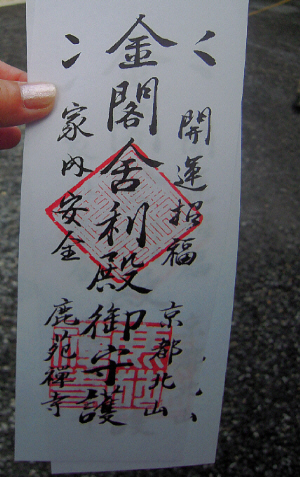 開運招福
京都北山
金閣舎利殿御守護
家内安全
鹿苑禅寺